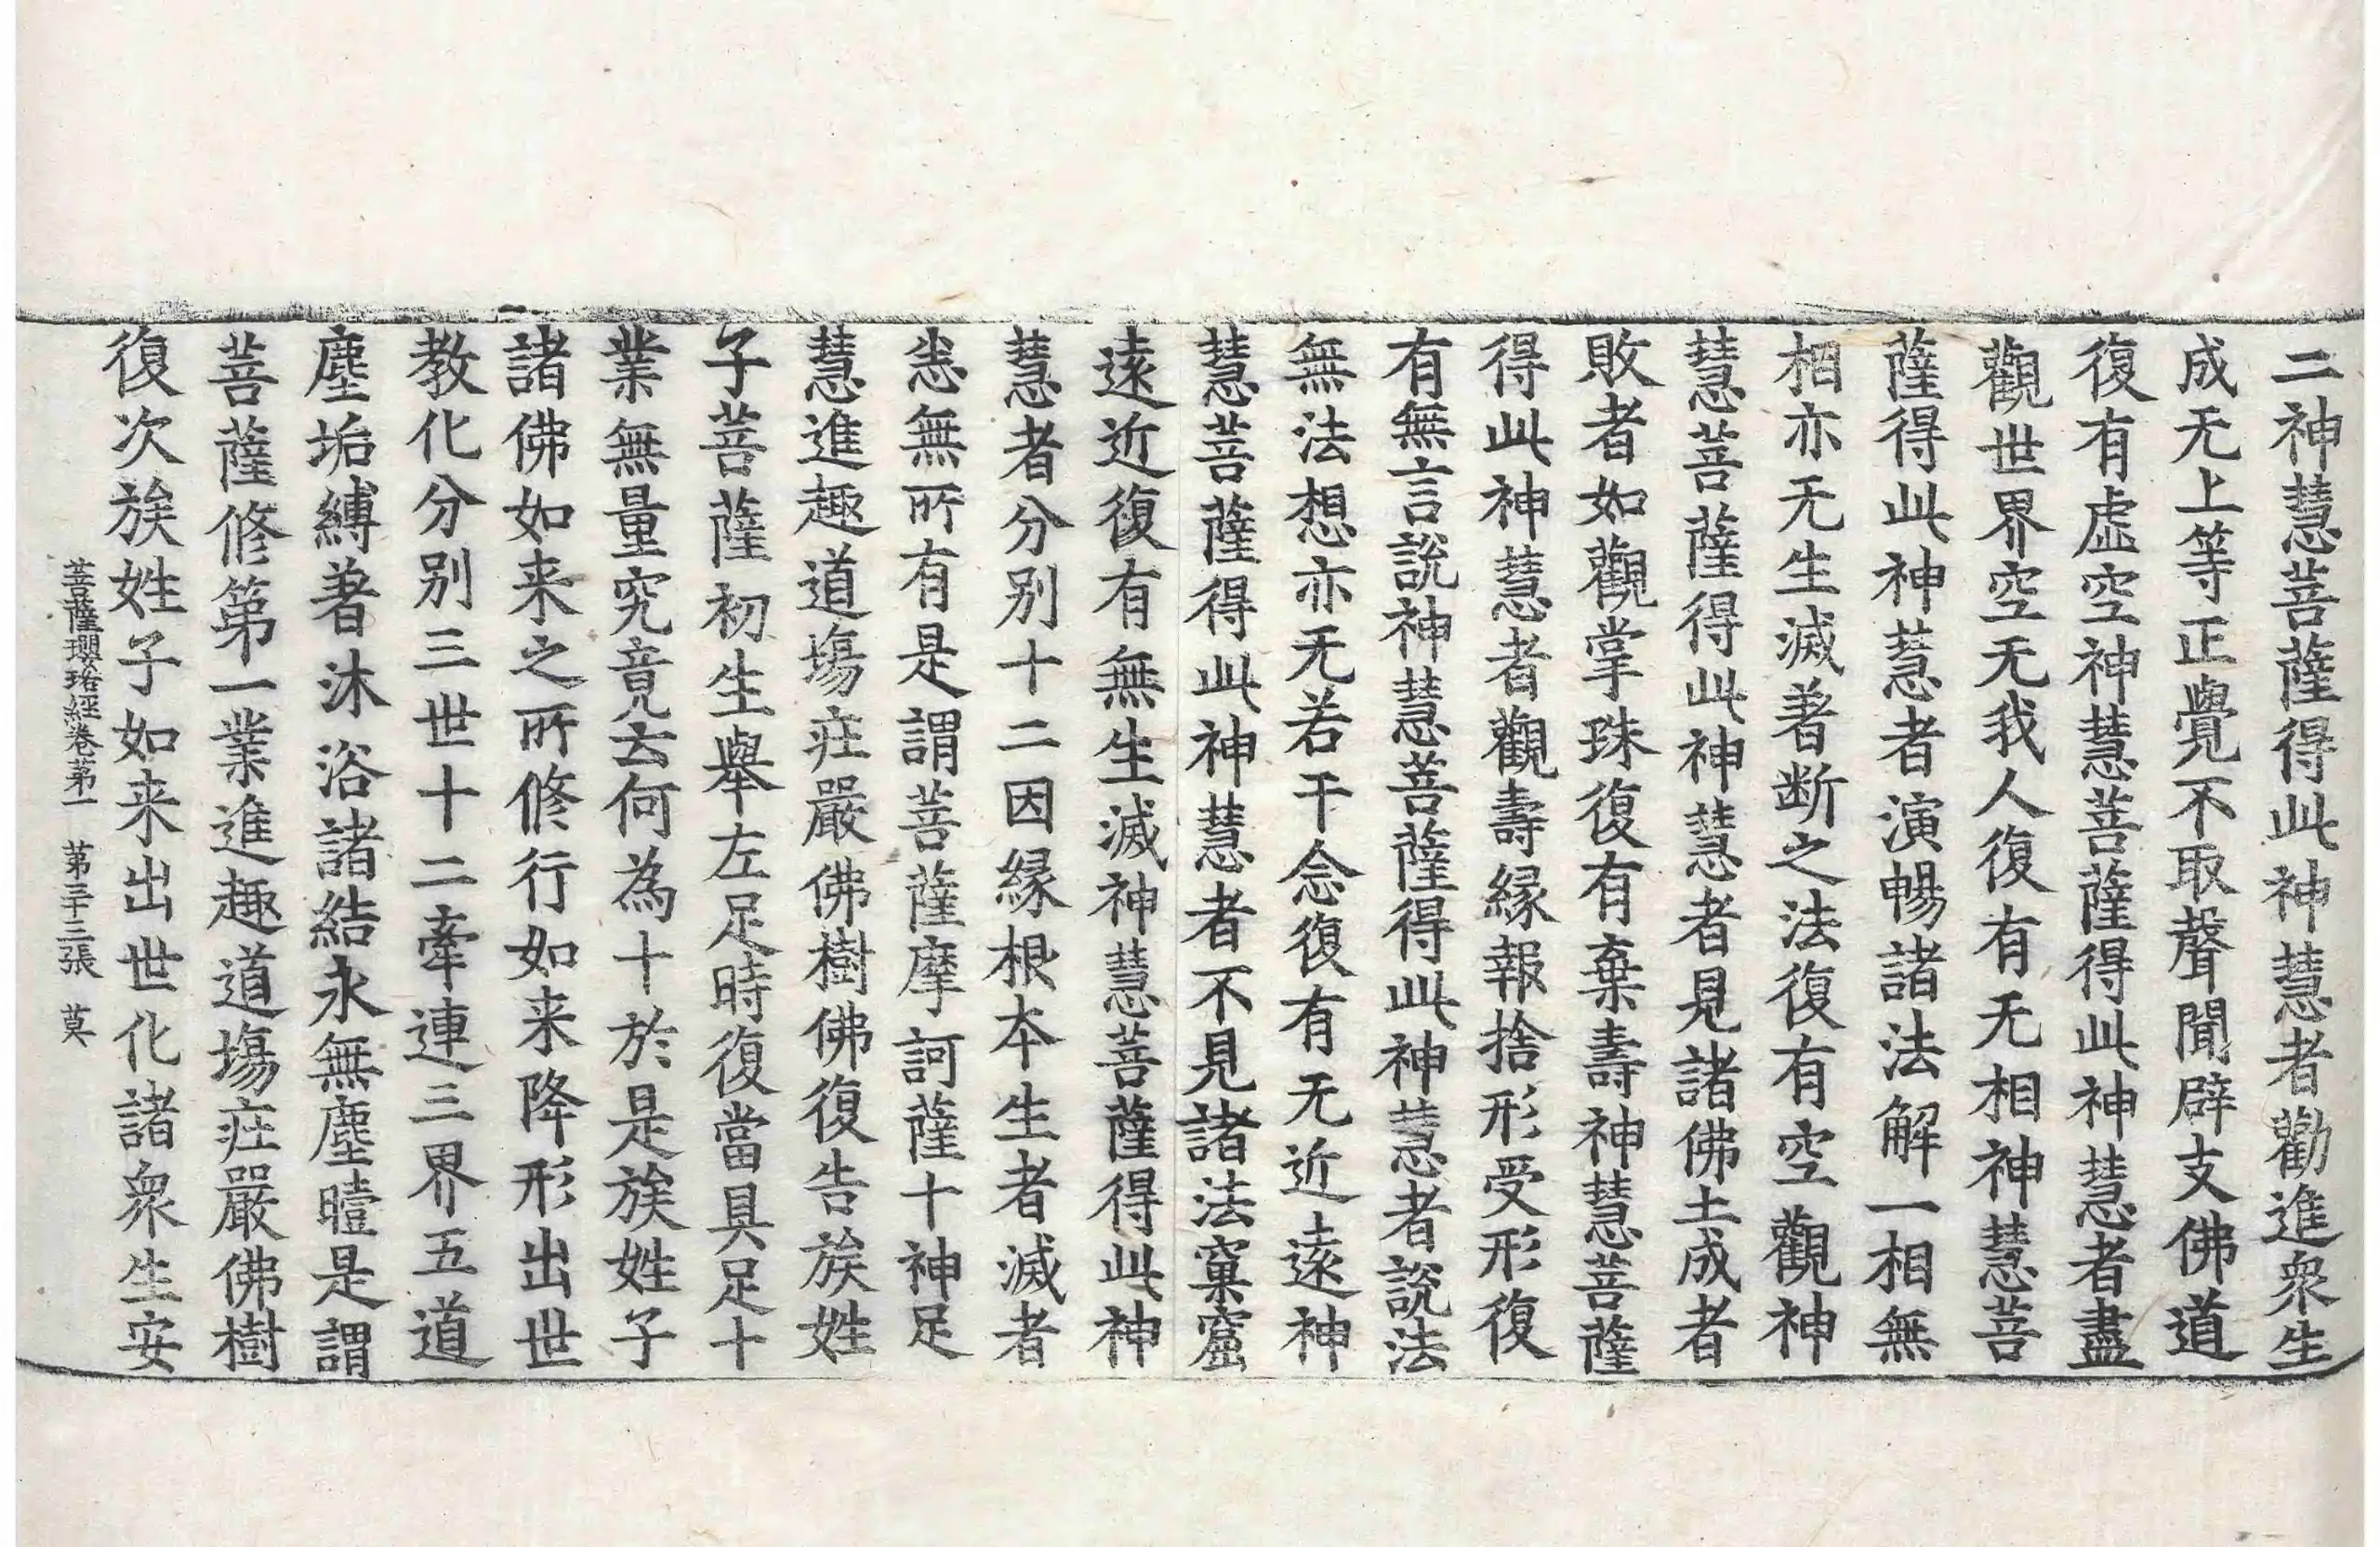 二神慧菩薩得此神慧者勸進衆生
成无上等正覺不取聲聞辟支佛道
復有虛空神慧菩薩得此神慧者盡
觀世界空无我人復有无相神慧菩
薩得此神慧者演暢諸法解一相無
相亦无生滅著断之法復有空觀神
慧菩薩得此神慧者見諸佛土成者
敗者如觀掌珠復有棄壽神慧菩薩
得此神慧者觀壽緣報捨形受形復
有無言說神慧菩薩得此神慧者說法
無法想亦无若干念復有无近遠神
慧菩薩得此神慧者不見諸法窠窟
遠近復有無生滅神慧菩薩得此神
慧者分別十二因緣根本生者滅者
悉無所有是謂菩薩摩訶薩十神足
慧進趣道場莊嚴佛樹佛復告族姓
子菩薩初生舉左足時復當具足十
業無量究竟云何為十於是族姓子
諸佛如来之所修行如来降形出世
教化分別三世十二牽連三界五道
塵垢縛著沐浴諸結永無塵曀是謂
菩薩修第一業進趣道場莊嚴佛樹
復次族姓子如来出世化諸衆生安
菩薩瓔珞經卷第一　第三十三張　莫